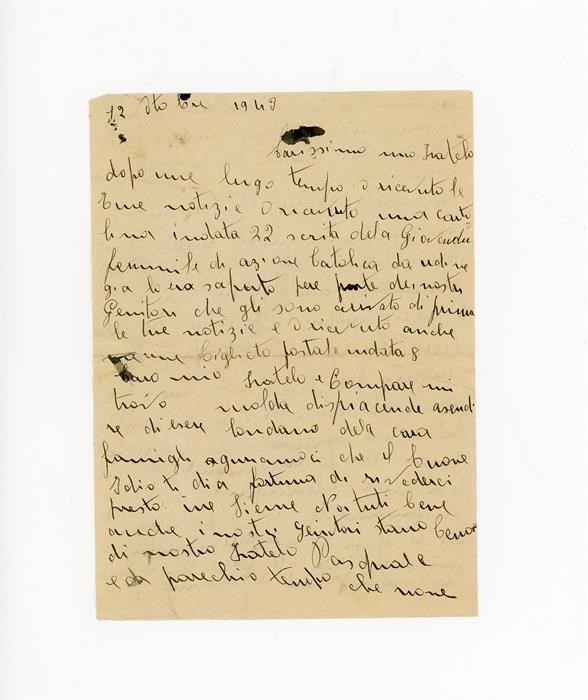 12 Otobre 1943
Carissimo mio Fratelo
dopo une lugo tempo o ricevuto le
tue notizie o ricevuto una carto
lina indata 22 scrita dela Gioventu
femmnile di azione Catolica da udine
gia lo era saputo pere parte dei nostri
Genitori che gli sono arivato di prima
le tue notizie e o ricevuto anche
une biglieto postale indata 8
Caro mio Fratelo e Compare mi
trovo molda dispiacende asendi
re di esere londano dela cara
famigli aguriamoci che il buone
Idio ti dia fortuna di rivederci
presto ine sieme Noi tuti bene
anche i nostri genitori stano bene
di nostro Fratelo Pasquale
e da parechio tempo che none